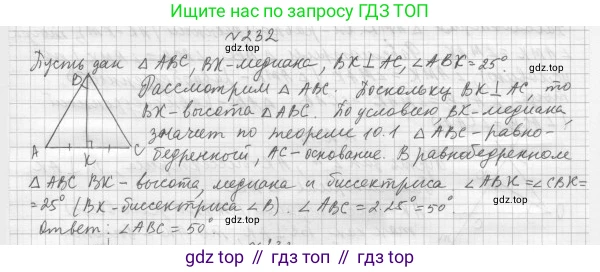 Ищите нас по запросу
ГДЗ ТОП
№232
Пусть дан △ ABC, BK-медиана, BK⊥AC, ∠ABK=25°
Рассмотрим △ ABC. Поскольку BK⊥AC, то
BK-высота △ABC. По условию, BK-медиана,
значит по теореме 10.1 △ABC-равно-
бедренный, AC-основание. В равнобедренном
△ ABC BK- высота, медиана и биссектриса ∠ABK=∠CBK=
=25° (BK-биссектриса ∠B). ∠ABC=2·25°=50°.
Ответ: ∠ABC=50°.
B
A
K
C
gdz.top
gdz.top
gdz.top
gdz.top
gdz.top
gdz.top
gdz.top